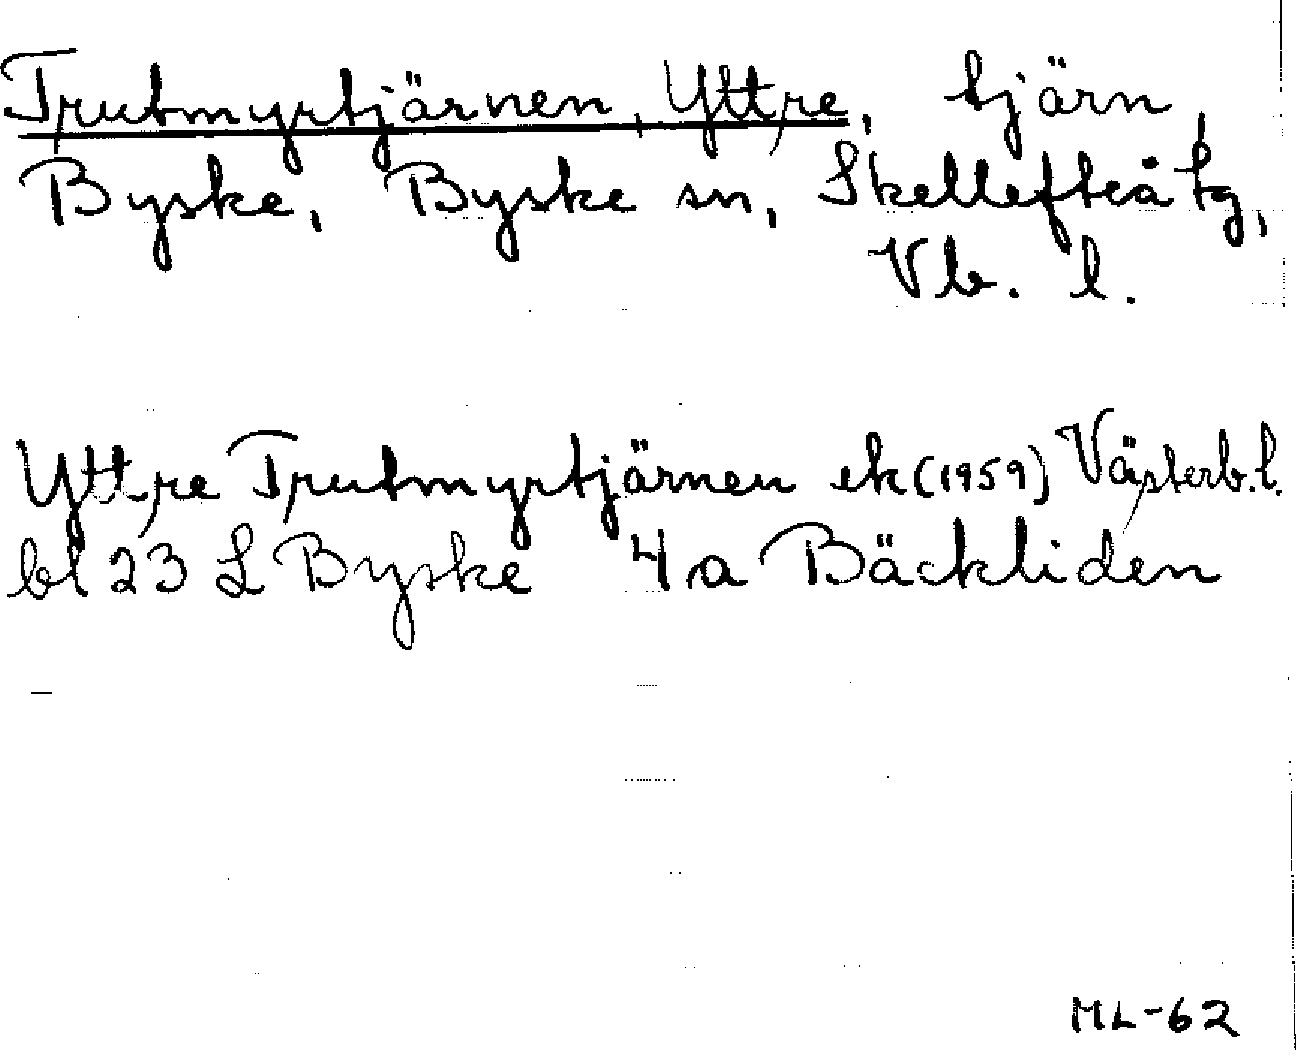 Trutmyrtjärnen, Yttre, tjärn
Byske, Byske sn, Skellefteå tg,
Vb. l.
Yttre Trutmyrtjärnen ek (1959) Västerb. l.
bl 23 L Byske 4 a Bäckliden
ML-62